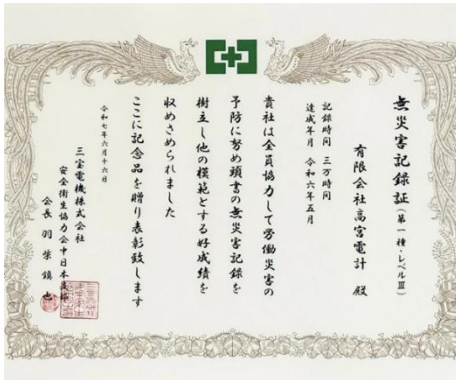 無災害記録証(第一種・レベルⅢ)
有限会社高宮電計 殿
記録時間 三万時間
達成年月 令和六年五月
貴社は全員協力して労働災害の
予防に努め頭書の無災害記録を
樹立し他の模範とする好成績を
収めさめられました
ここに記念品を贈り表彰致します
令和七年六月十六日
三宝電機株式会社
安全衛生協力会中日本支部
会長 羽柴鎮也